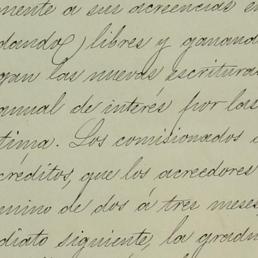 mente a sus acreencias en
dando) libres y ganando
gan las nuevas escrituras
anual de interés por las
tima. Los comisionados
créditos, que los acreedores
mino de dos á tres meses
diato siguiente, la gradu